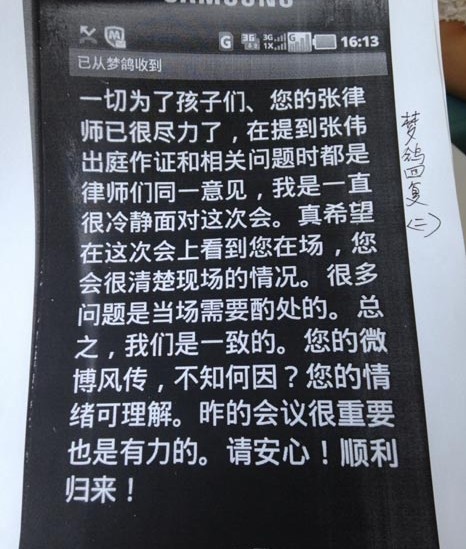 SAMSUNG
G 3G 3G 1X G 16:13
已从梦鸽收到
一切为了孩子们、您的张律
师已很尽力了，在提到张伟
出庭作证和相关问题时都是
律师们同一意见，我是一直
很冷静面对这次会。真希望
在这次会上看到您在场，您
会很清楚现场的情况。很多
问题是当场需要酌处的。总
之，我们是一致的。您的微
博风传，不知何因？您的情
绪可理解。昨的会议很重要
也是有力的。请安心！顺利
归来！
梦鸽回复(二)